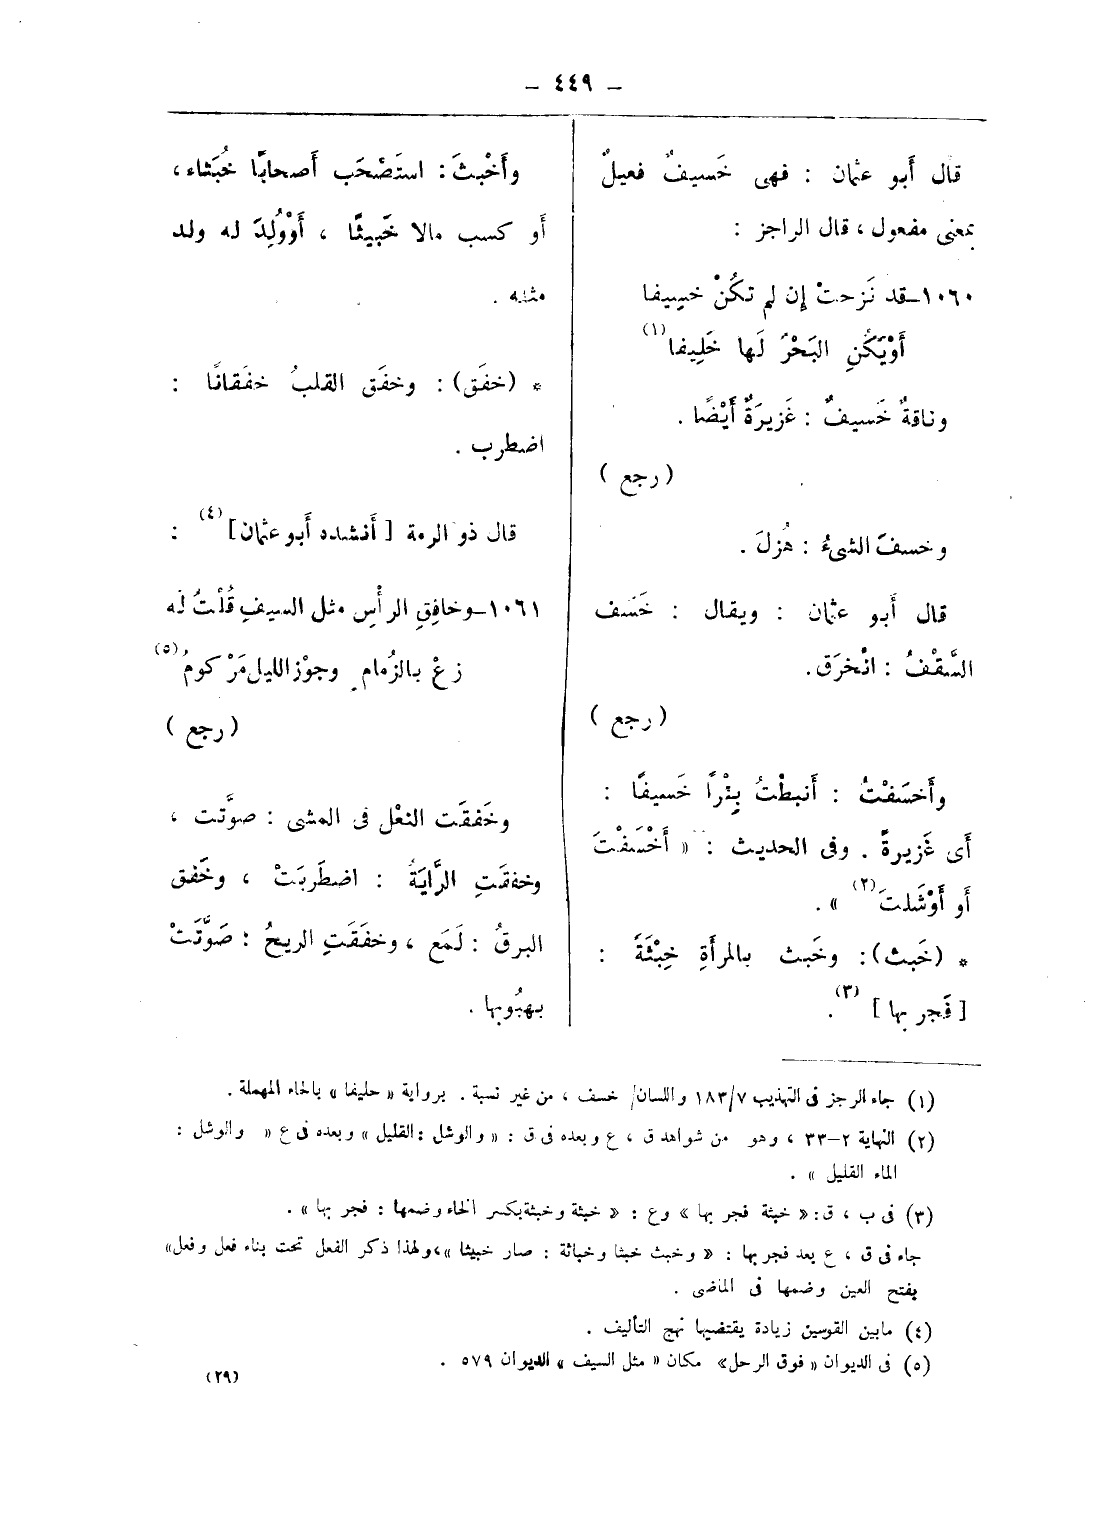 – ٤٤٩ –
قال أَبو عثمان : فهى خَسيفٌ فعيلٌ
بمعنى مفعول ، قال الراجز :
١٠٦٠–قد نَزحتْ إن لم تكُنْ خسِيفا
أَوْيَكُنِ البَحْرُ لَها خَلِيفا(١)
وناقةٌ خَسيفٌ : غَزيرَةٌ أَيْضًا .
( رجع )
وخسفَ الشىءُ : هُزلَ .
قال أَبو عثمان : ويقال : خَسَف
السَّقفُ : انْخرَق.
( رجع )
وأَخسَفْتُ : أَنبطْتُ بِئْرًا خَسيفًا :
أَى غَزيرةً . وفى الحديث : « أَخْسَفْتَ
أَو أَوْشَلتَ(٢) » .
* (خَبث): وخَبث بالمرأَةِ خِبْثَةً :
[ فَجر بها ] (٣).
وأَخْبثَ : استَصْحَب أَصحابًا خُبَثاء ،
أَو كسب مالا خَبيثًا ، أَوْوُلِدَ له ولد
مثله .
* (خفَق): وخفَق القلبُ خفَقانًا :
اضطرب .
قال ذو الرمة [ أَنشده أَبو عثمان ] (٤) :
١٠٦١–وخافِقِ الرأْسِ مثل السيفِ قُلْتُ له
زعْ بالزِّمام وجوْز الليل مَرْكومُ(٥)
( رجع )
وخَفقَت النعْل فى المشى : صوَّتت ،
وخفقَتِ الرَّايَةُ : اضطَربَتْ ، وخَفق
البرقُ : لَمَع ، وخفَقَتِ الريحُ : صَوَّتَتْ
بهبُوبها .
(١) جاء الرجز فى التهذيب ١٨٣/٧ واللسان/ خسف ، من غير نسبة . برواية « حليفا » بالحاء المهملة .
(٢) النهاية ٢–٣٣ ، وهو من شواهد ق ، ع وبعده فى ق : « والوشل : القليل » وبعده فى ع « والوشل :
الماء القليل » .
(٣) فى ب ، ق: « خبثة فجر بها » وع : « خبثة وخبثة بكسر الخاء وضمها : فجر بها » .
جاء فى ق ، ع بعد فجر بها : « وخبث خبثا وخباثة : صار خبيثا »،ولهذا ذكر الفعل تحت بناء فعل وفعل»
بفتح العين وضمها فى الماضى .
(٤) مابين القوسين زيادة يقتضيها نهج التأليف .
(٥) فى الديوان « فوق الرحل» مكان « مثل السيف » الديوان ٥٧٩ .
(٢٩)